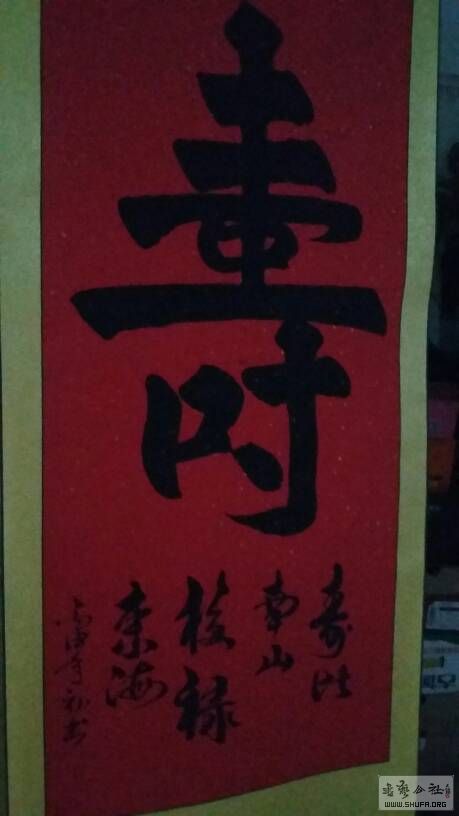 壽
寿比
南山
禄
東海
書藝公社
WWW.SHUFA.ORG